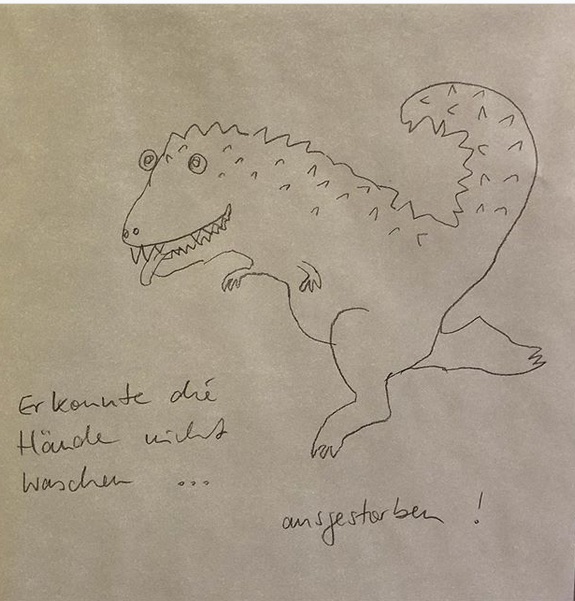 Er konnte die
Hände nicht
waschen ...
ausgestorben !